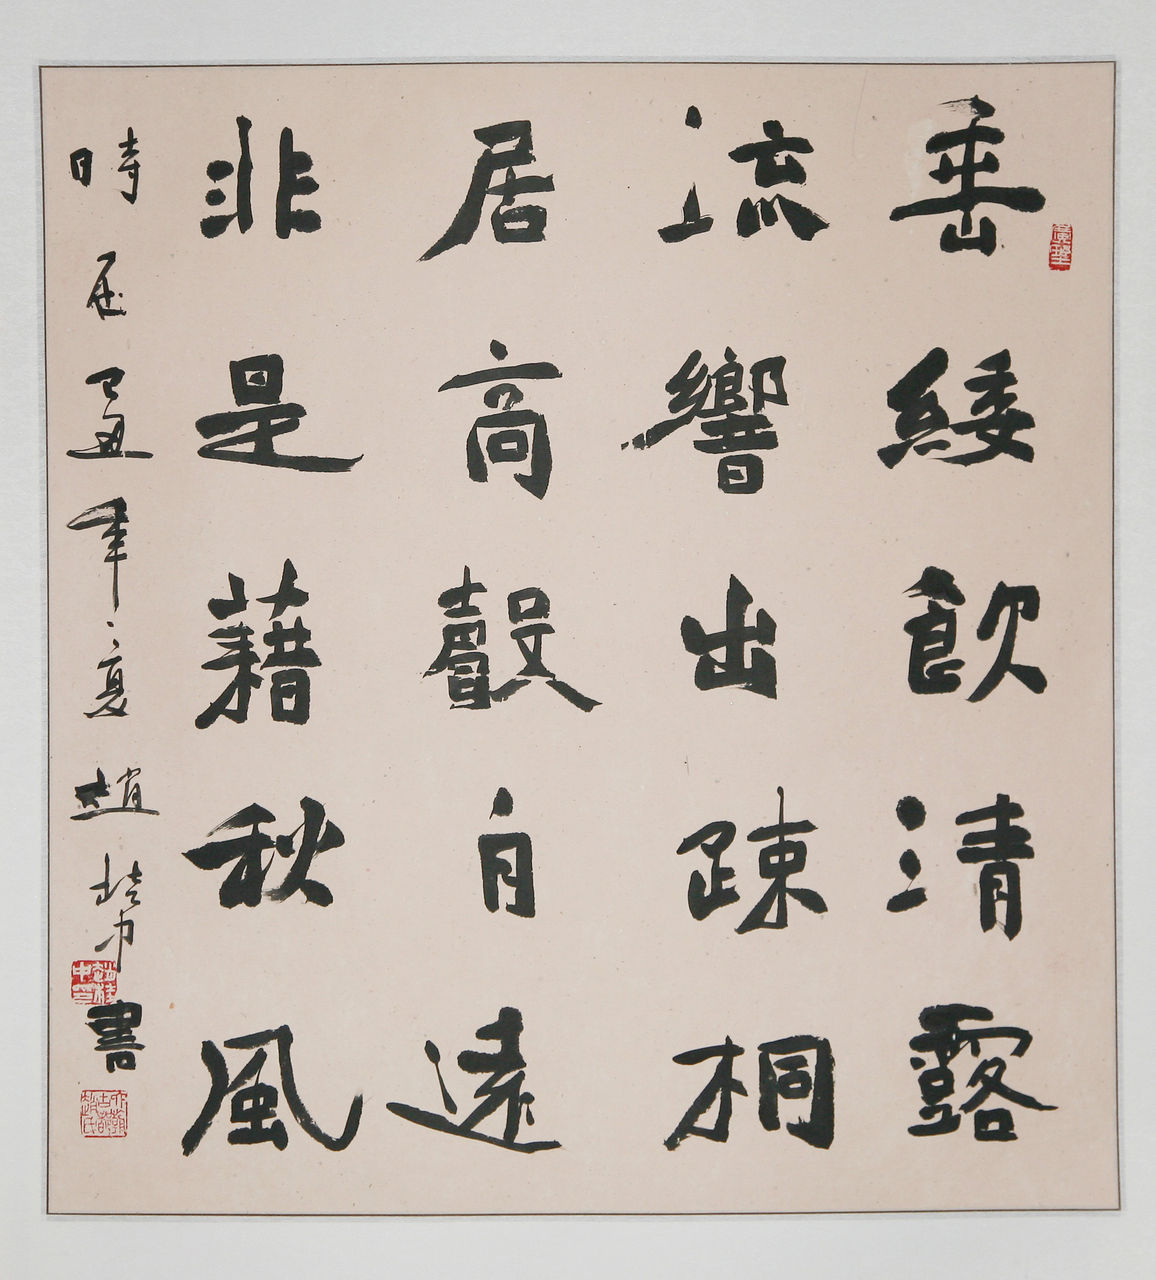 垂緌飲清露
流響出疎桐
居高聲自遠
非是藉秋風
時在己丑年夏趙培中書